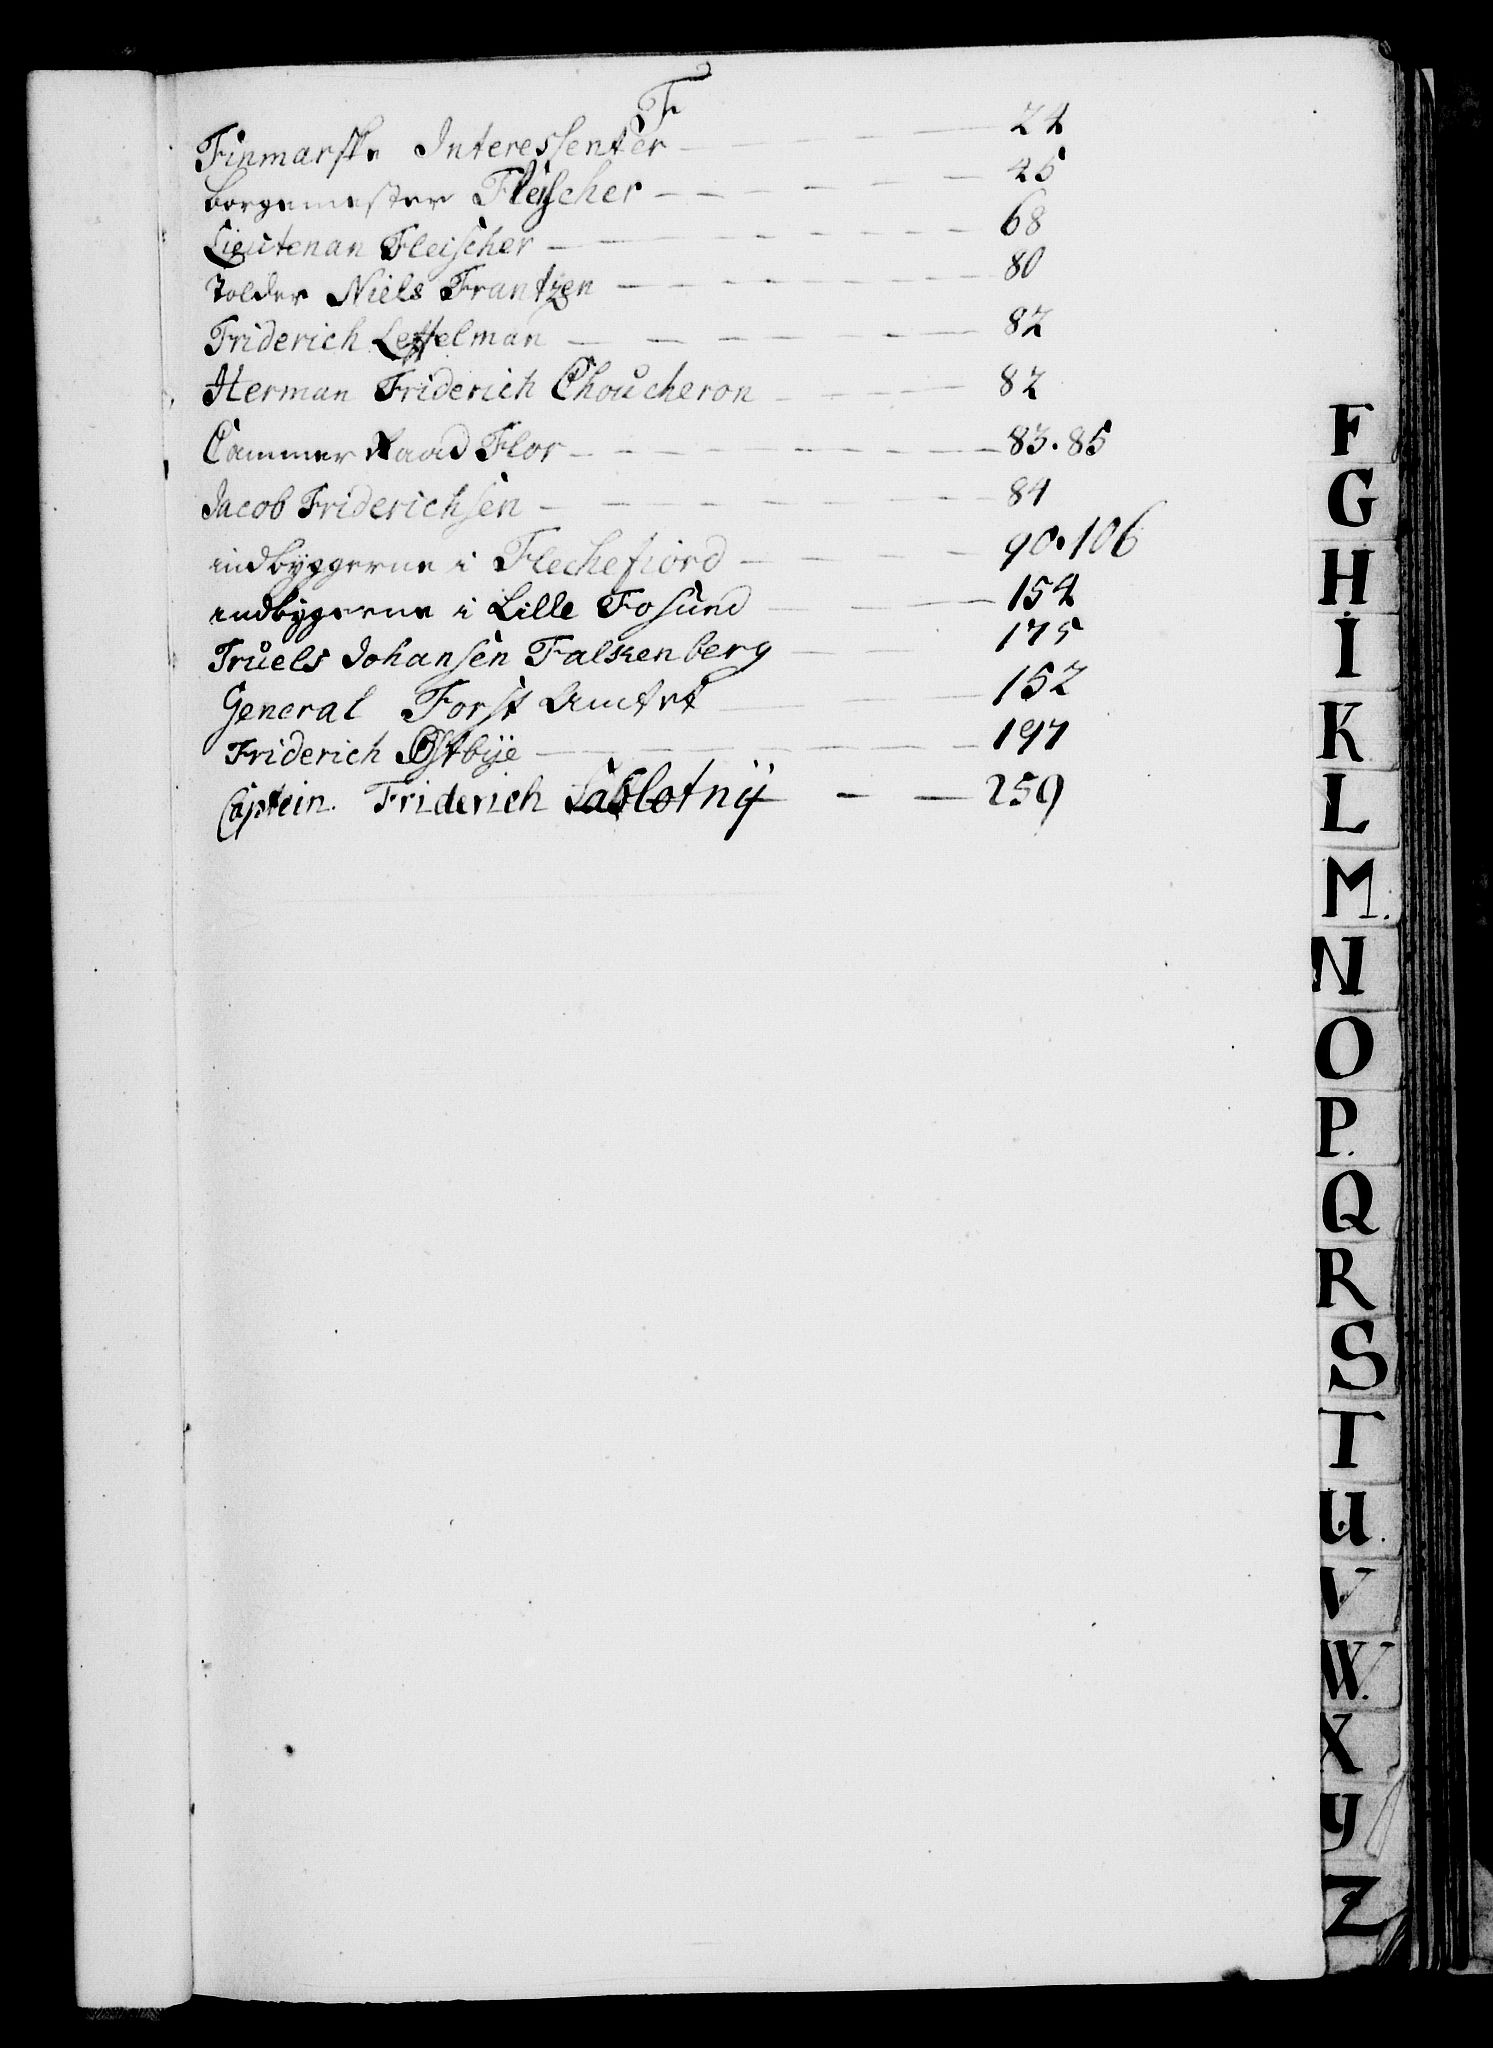 F
Finmarske Interessenter - - - 24
Borgemester Fleischer - - - 45
Lieutenan Fleischer - - - 68
Tolder Niels Frantzen - - - 80
Friderich Leffelman - - - 82
Herman Friderich Choucheron - - - 82
Cammer Raad Flor - - - 83. 85
Jacob Friderichsen - - - 84
indbyggerne i Flechefiord - - - 90. 106
indbygerne i Lille Fosund - - - 154
Truels Johansen Falkenberg - - - 175
General Forst Amtet - - - 152
Friderich Østbÿe - - - 197
Captein Friderich Sablotnÿ - - - 259
F
G
H
I
K
L
M.
N
O
P.
Q
R
S
T
U.
V
W.
X
Y
Z